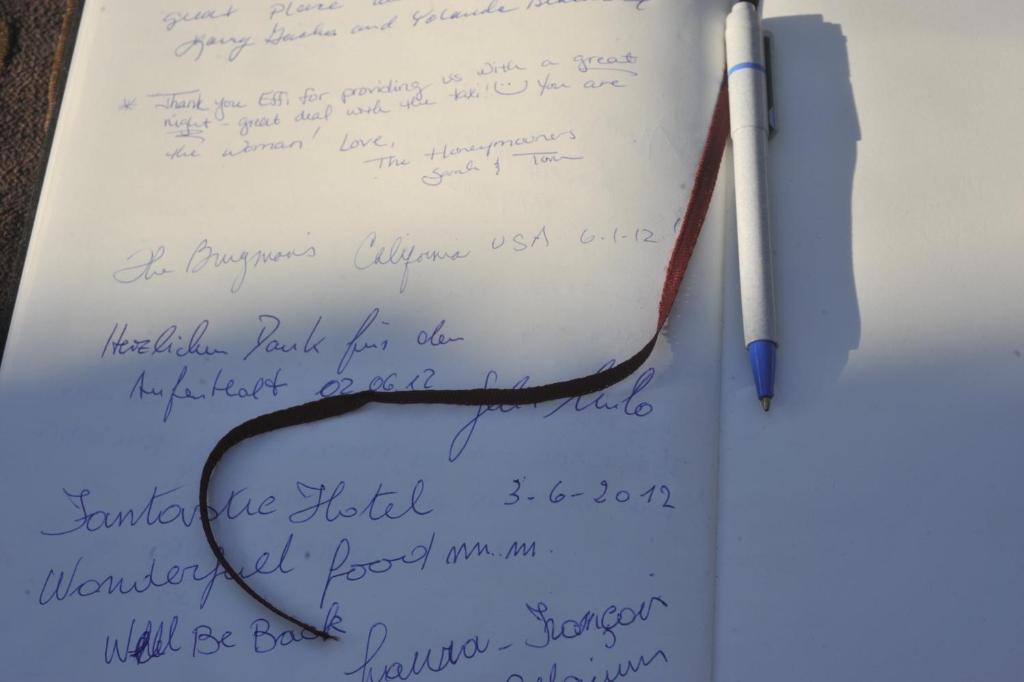 great Place
and Yolande
* Thank you Effi for providing us with a great
night - great deal with the taxi! You are
the woman! Love,
The Honeymooners
Sarah & Tom
The Brugman's California USA 6-1-12
Herzlichen Dank für den
Aufenthalt 02.06.12
Fantastic Hotel 3-6-2012
Wonderfuel food mm.m.
Will Be Back
François
Belgium